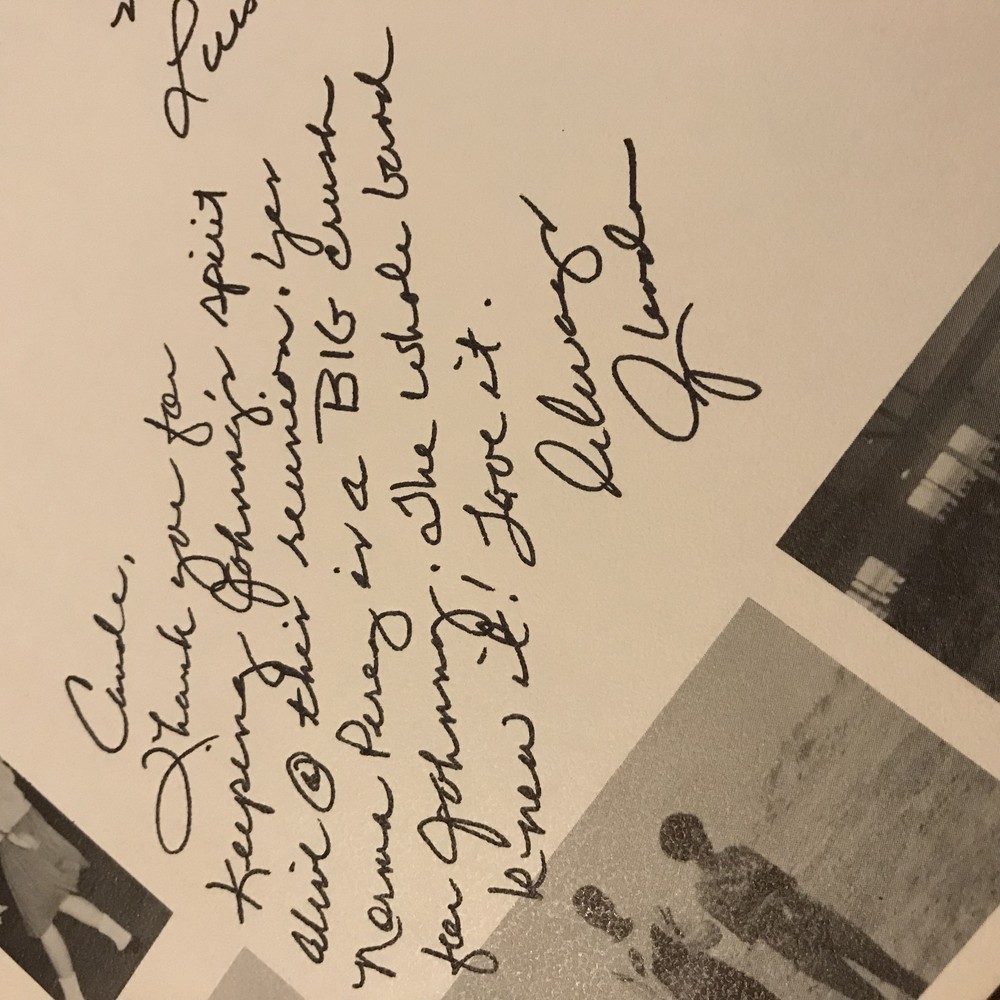 Cande,
Thank you for
Keeping Johnny's spirit
alive @ this reunion. Yes
Norma Perez is a BIG crush
for Johnny. The whole band
knew it! Love it.
Always